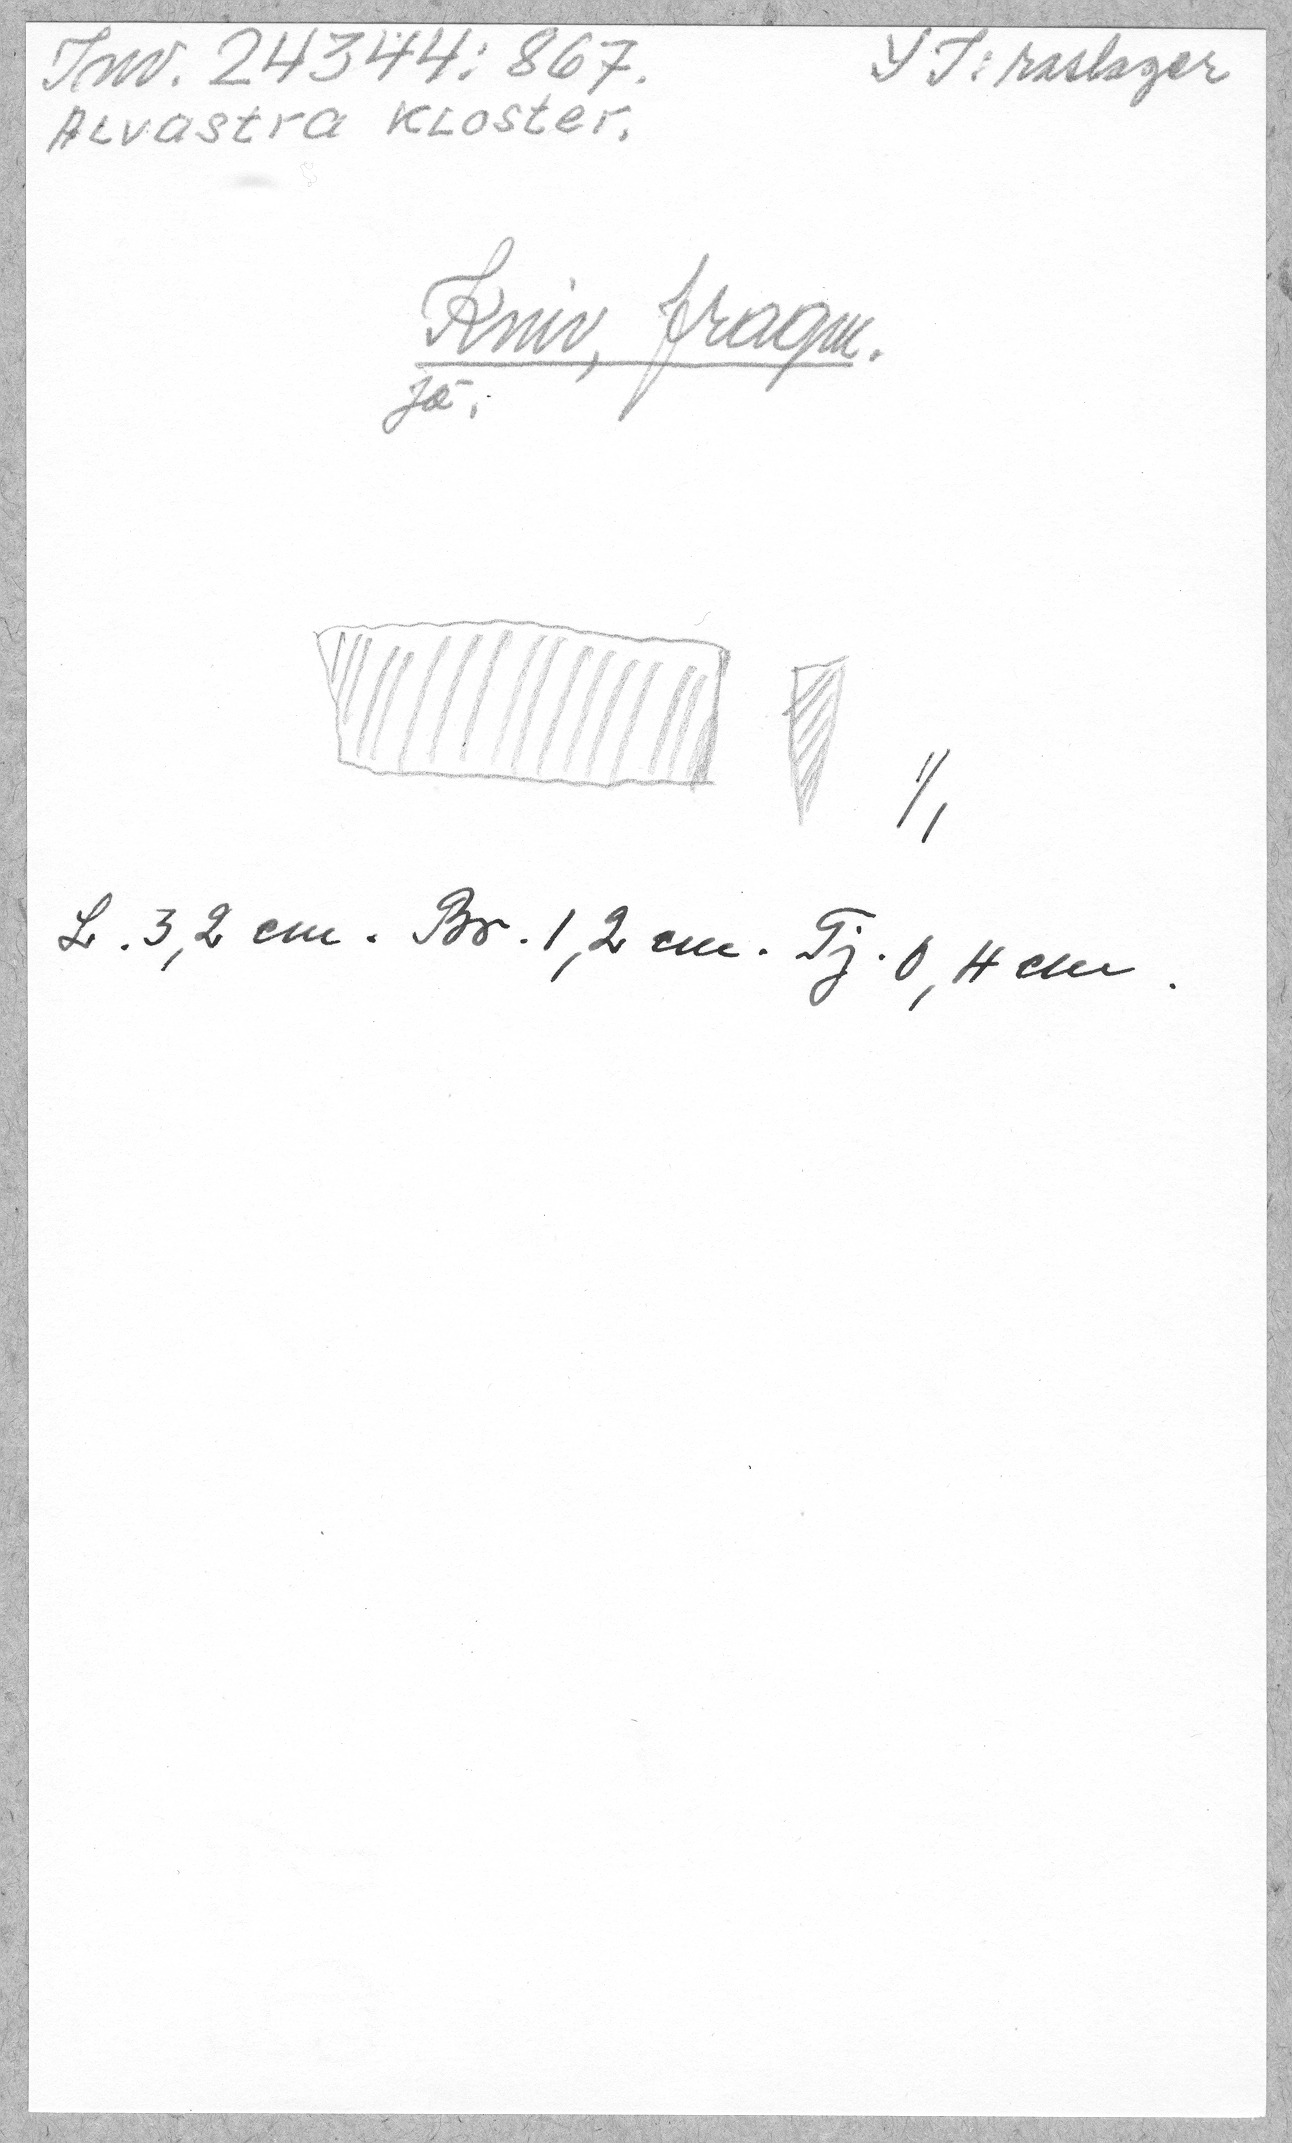 Inv. 24344:867.
Y I: raslager
Alvastra Kloster.
Kniv, fragm.
jä.
1/1
L. 3,2 cm. Br. 1,2 cm. Tj. 0,4 cm.